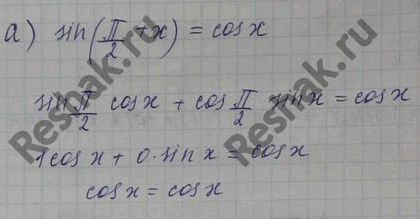 а) sin(π/2 + x) = cos x
sin π/2 cos x + cos π/2 sin x = cos x
1 cos x + 0 · sin x = cos x
cos x = cos x
Reshak.ru
Reshak.ru